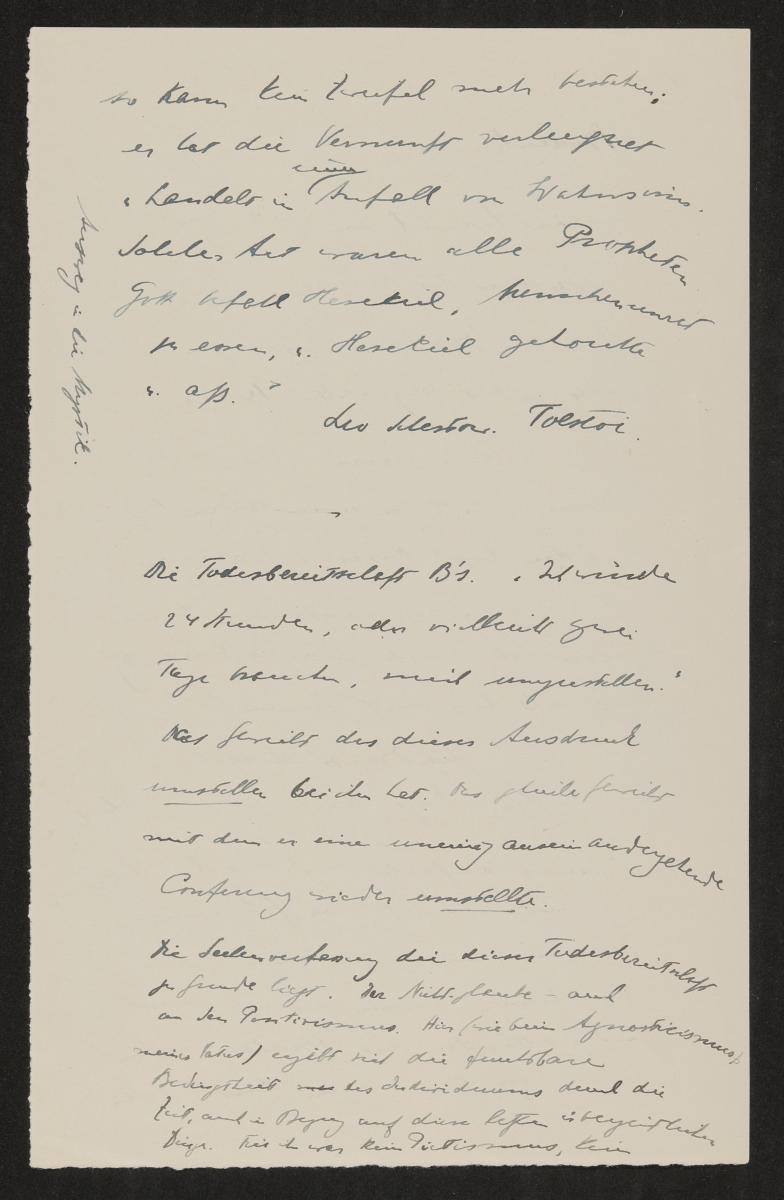 so kann kein Zweifel mehr bestehen;
er hat die Vernunft verleugnet
einem
u. handelt in Anfall von Wahnsinn.
Solcher Art waren alle Propheten
Gott befahl Hesekiel, Menschenunrat
zu essen, u. Hesekiel gehorchte
u. aß."
Leo Schestow. Tolstoi.
Ausweg in die Mystik.
Die Todesbereitschaft B's. "Ich würde
24 Stunden, oder vielleicht zwei
Tage brauchen, mich umzustellen."
Das Gewicht das dieser Ausdruck
umstellen bei ihm hat. Das gleiche Gewicht
mit dem er eine uneinig auseinandergehende
Conferenz wieder umstellte.
Die Seelenverfassung die dieser Todesbereitschaft
zu Grunde liegt. Der Nicht-glaube – auch
an den Positivismus. Hier (wie beim Agnosticismus
meines Vaters) ergibt sich die furchtbare
Bedingtheit des Individuums durch die
Zeit, auch in Bezug auf diese letzten unbegreiflichen
Dinge. Für ihn war kein Pietismus, kein